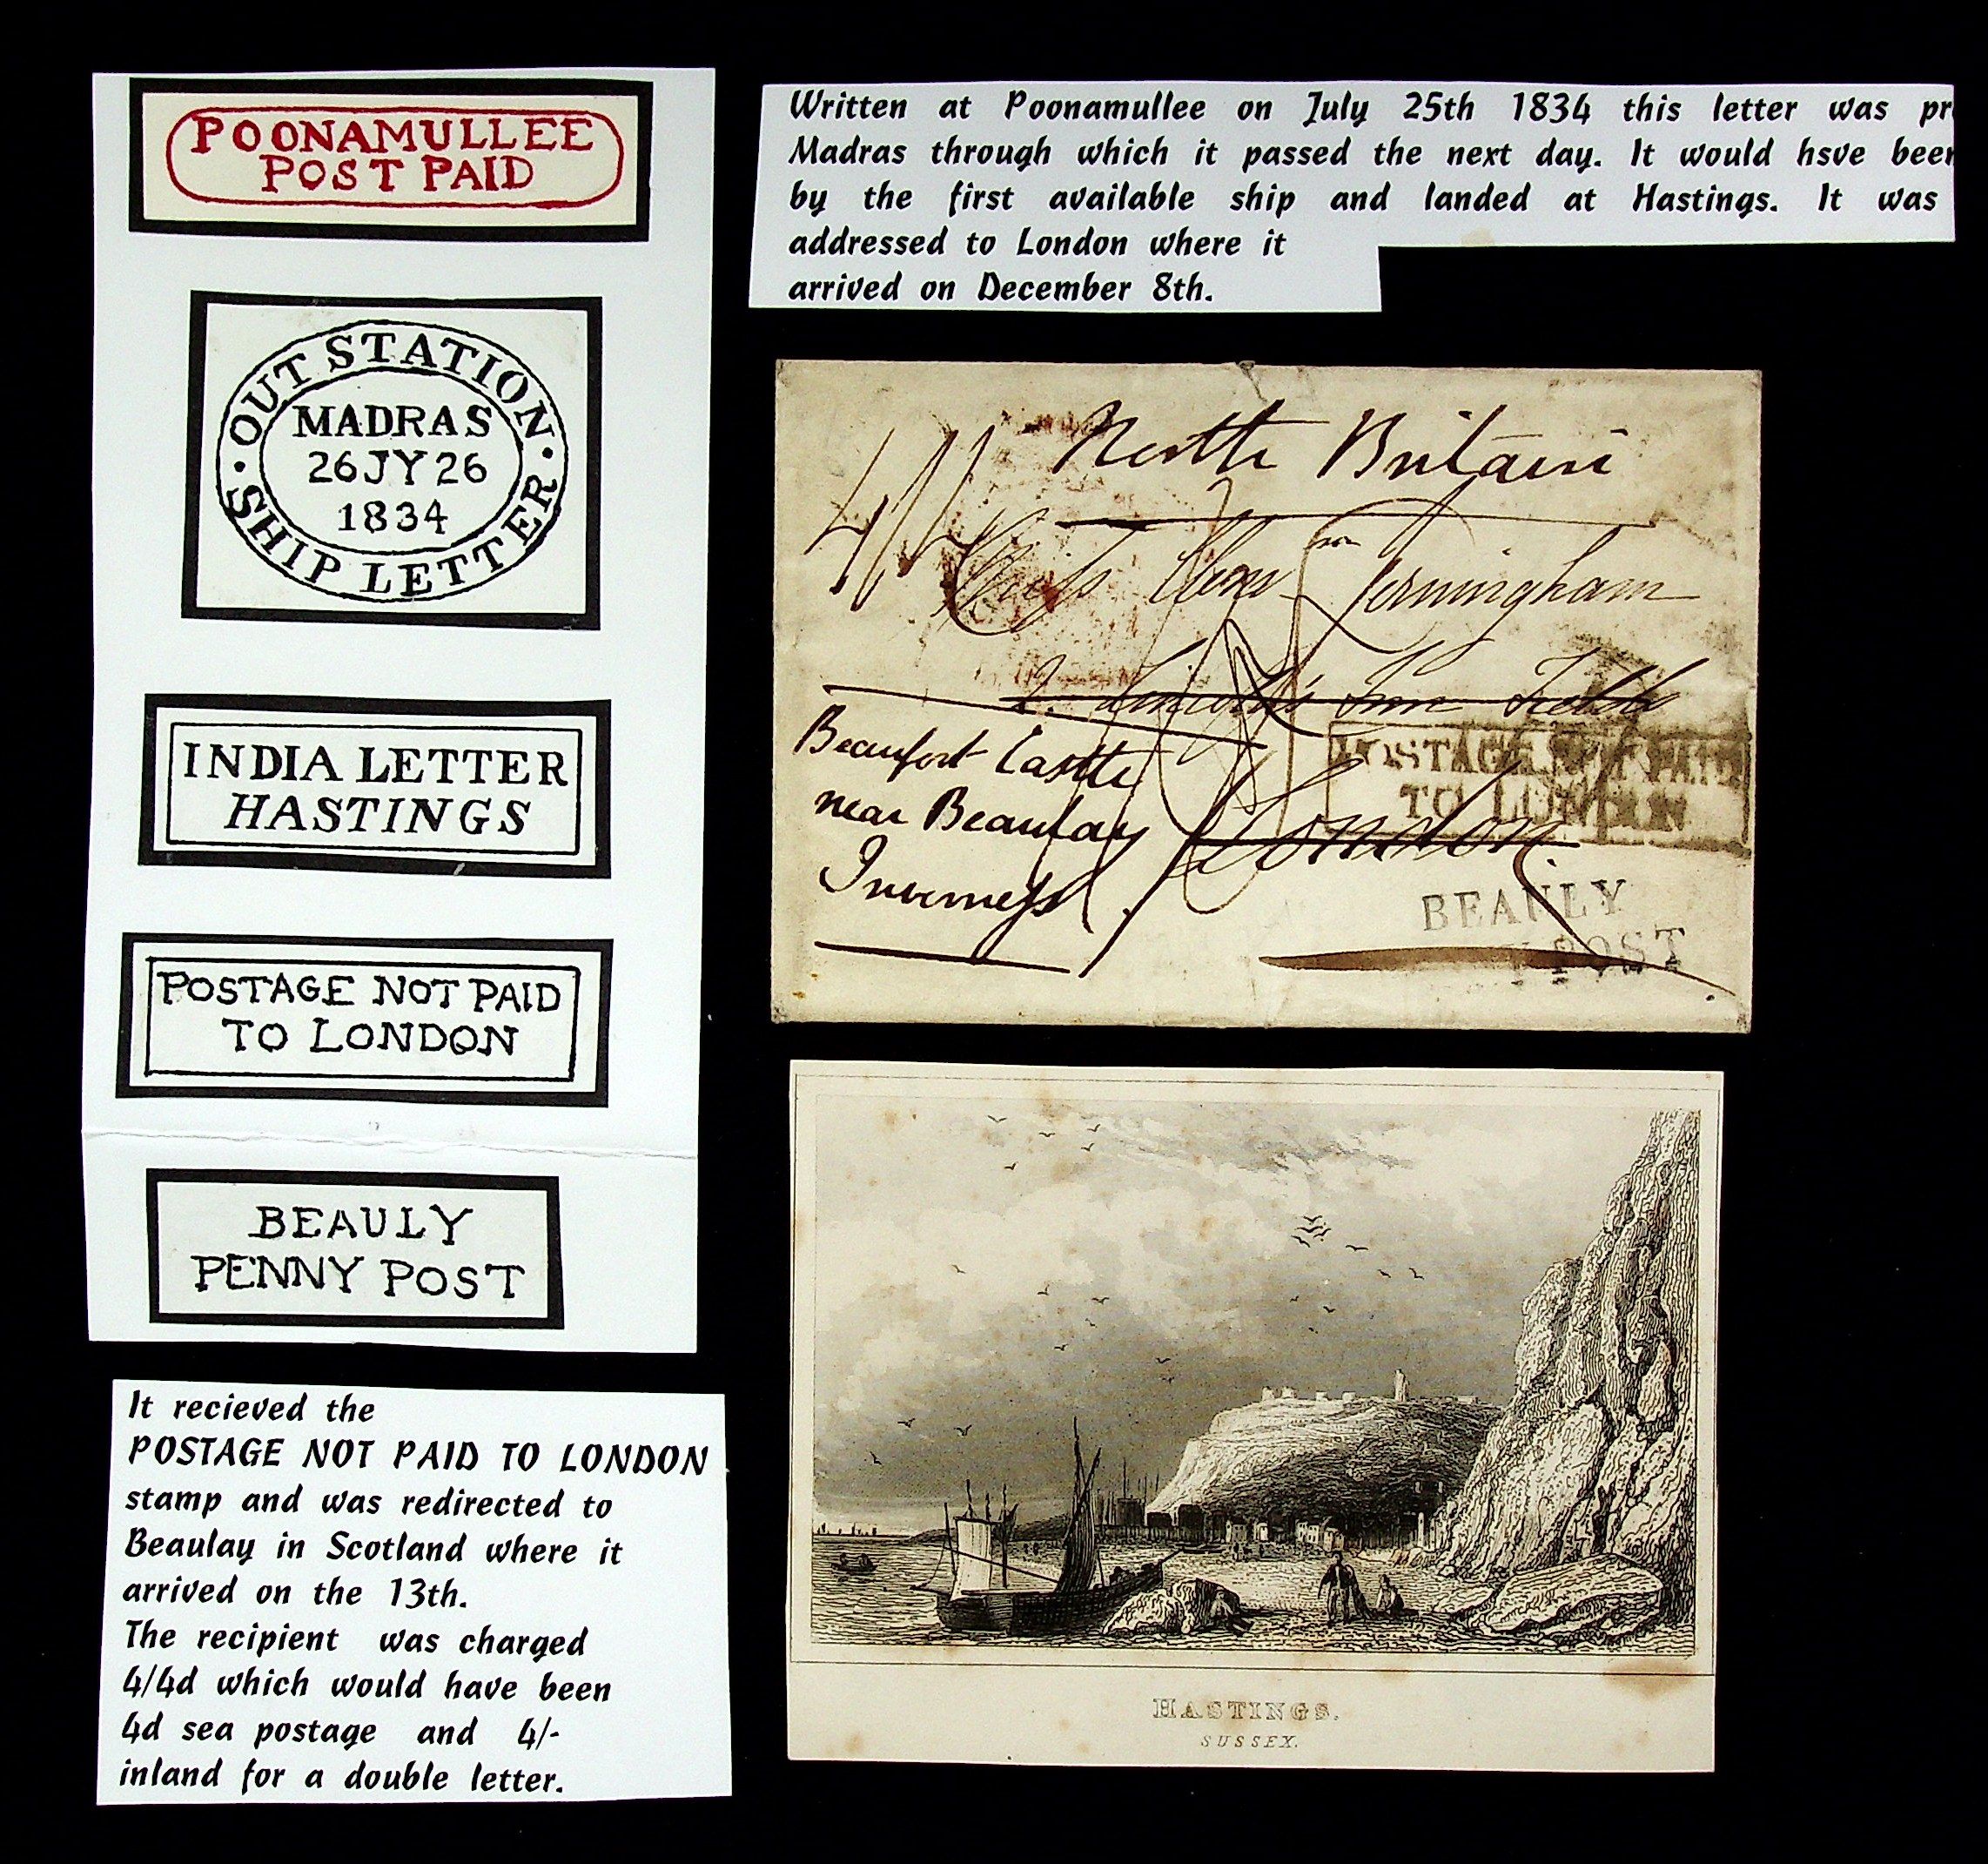 POONAMULLEE
POST PAID
OUT STATION
MADRAS
26 JY 26
1834
SHIP LETTER
INDIA LETTER
HASTINGS
POSTAGE NOT PAID
TO LONDON
BEAULY
PENNY POST
It recieved the
POSTAGE NOT PAID TO LONDON
stamp and was redirected to
Beaulay in Scotland where it
arrived on the 13th.
The recipient was charged
4/4d which would have been
4d sea postage and 4/-
inland for a double letter.
Written at Poonamullee on July 25th 1834 this letter was pr
Madras through which it passed the next day. It would hsve been
by the first available ship and landed at Hastings. It was
addressed to London where it
arrived on December 8th.
North Britain
Jerningham
2. Lincoln's Inn Fields
POSTAGE NOT PAID
TO LONDON
Beaufort Castle
near Beaulay
London
Inverness
BEAULY
Y POST
HASTINGS.
SUSSEX.